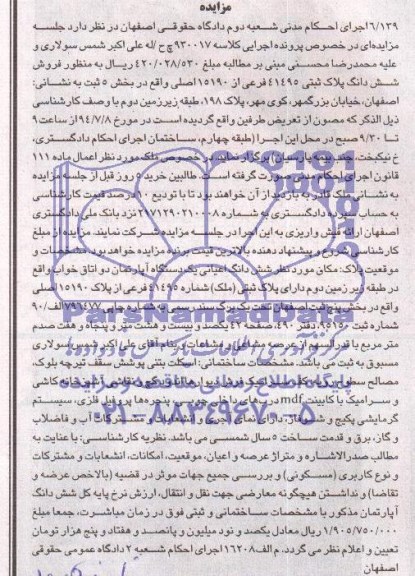 مزایده
۶/۱۳۹اجرای احکام مدنی شعبه دوم دادگاه حقوقی اصفهان در نظر دارد جلسه
مزایده‌ای در خصوص پرونده اجرایی کلاسه ۹۳۰۰۱۷ ج ح /له علی اکبر شمس سولاری و
علیه محمدرضا محسنی مبنی بر مطالبه مبلغ ۴۲۰/۰۲۸/۵۳۰ ریال به منظور فروش
شش دانگ پلاک ثبتی ۴۱۴۹۵ فرعی از ۱۵۱۹۰ اصلی واقع در بخش ۵ ثبت به نشانی:
اصفهان، خیابان بزرگمهر، کوی مهر، پلاک ۱۹۸، طبقه زیرزمین دوم با وصف کارشناسی
ذیل الذکر که مصون از تعریض طرفین واقع گردیده است در مورخ ۹۴/۷/۸ از ساعت ۹
تا ۹/۳۰ صبح در محل این اجرا (طبقه چهارم، ساختمان اجرای احکام دادگستری،
خ نیکبخت، جنب بیمه پارسیان) برگزار نماید در خصوص ملک مورد نظر اعمال ماده ۱۱۱
قانون اجرای احکام مدنی صورت گرفته است. طالبین خرید ۵ روز قبل از جلسه مزایده
به نشانی ملک قادر به بازدید از آن خواهند بود تا با تودیع ۱۰ درصد قیمت کارشناسی
به حساب سپرده دادگستری به شماره ۲۱۷۱۲۹۰۲۱۰۰۰۸ نزد بانک ملی دادگستری
اصفهان ارائه فیش واریزی به این اجرا در جلسه مزایده شرکت نمایند. مزایده از مبلغ
کارشناسی شروع و پیشنهاد دهنده بالاترین قیمت برنده مزایده خواهد بود. مشخصات و
موقعیت پلاک: مکان مورد نظر شش دانگ اعیانی یک دستگاه آپارتمان دو اتاق خواب واقع
در طبقه زیر زمین دوم دارای پلاک ثبتی (ملک) شماره ۴۱۴۹۵ فرعی از پلاک ۱۵۱۹۰ اصلی
واقع در بخش پنج ثبت اصفهان تحت یک برگ سند رسمی به شماره چاپی ۷۹۶۴۷۷ الف/۹۰
شماره ثبت ۹۵۱۵۰، دفتر ۴۹۰، صفحه ۴۲ یکصد و بیست و هشت متر و پنجاه و هفت صدم
متر مربع با قدرالسهم از عرصه مشاعی و مشاعات و بنام آقای علی اکبر شمس سولاری
مسبوق به ثبت می باشد. مشخصات ساختمانی: اسکلت بتنی پوشش سقف تیرچه بلوک
و سرامیک با کابینت mdf درب‌های داخلی چوبی، پنجره‌ها پروفیل فلزی، سیستم
گرمایشی پکیج و شوفاژ، دارای نمای آجری و انشعابات و مشترکات آب و فاضلاب
و گاز، برق و قدمت ساخت ۵ سال شمسی می باشد. نظریه کارشناسی: با عنایت به
مطالب صدرالاشاره و متراژ عرصه و اعیان، موقعیت، امکانات، انشعابات و مشترکات
و نوع کاربری (مسکونی) و بررسی جمیع جهات موثر در قضیه (بالاخص عرضه و
تقاضا) و نداشتن هیچگونه معارضی جهت نقل و انتقال، ارزش نرخ پایه کل شش دانگ
آپارتمان مذکور با مشخصات ساختمانی و ثبتی فوق در زمان مباشرت، جمعا مبلغ
۱/۹۰۵/۷۵۰/۰۰۰ ریال معادل یکصد و نود میلیون و پانصد و هفتاد و پنج هزار تومان
تعیین و اعلام نظر می گردد. م الف۱۶۲۰۸ اجرای احکام شعبه ۲ دادگاه عمومی حقوقی
اصفهان
ParsNamadData
۰۲۱-۸۸۳۴۹۶۷۰-۵